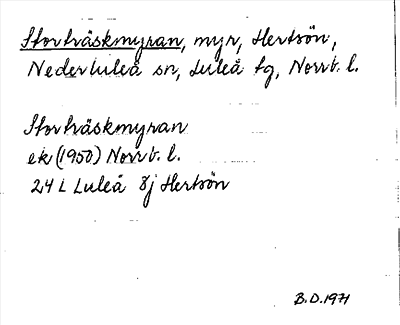 Storträskmyran, myr, Hertsön,
Nederluleå sn, Luleå tg, Norrb. l.
Storträskmyran
ek (1950) Norrb. l.
24 L Luleå 8j Hertsön
B.D. 1971